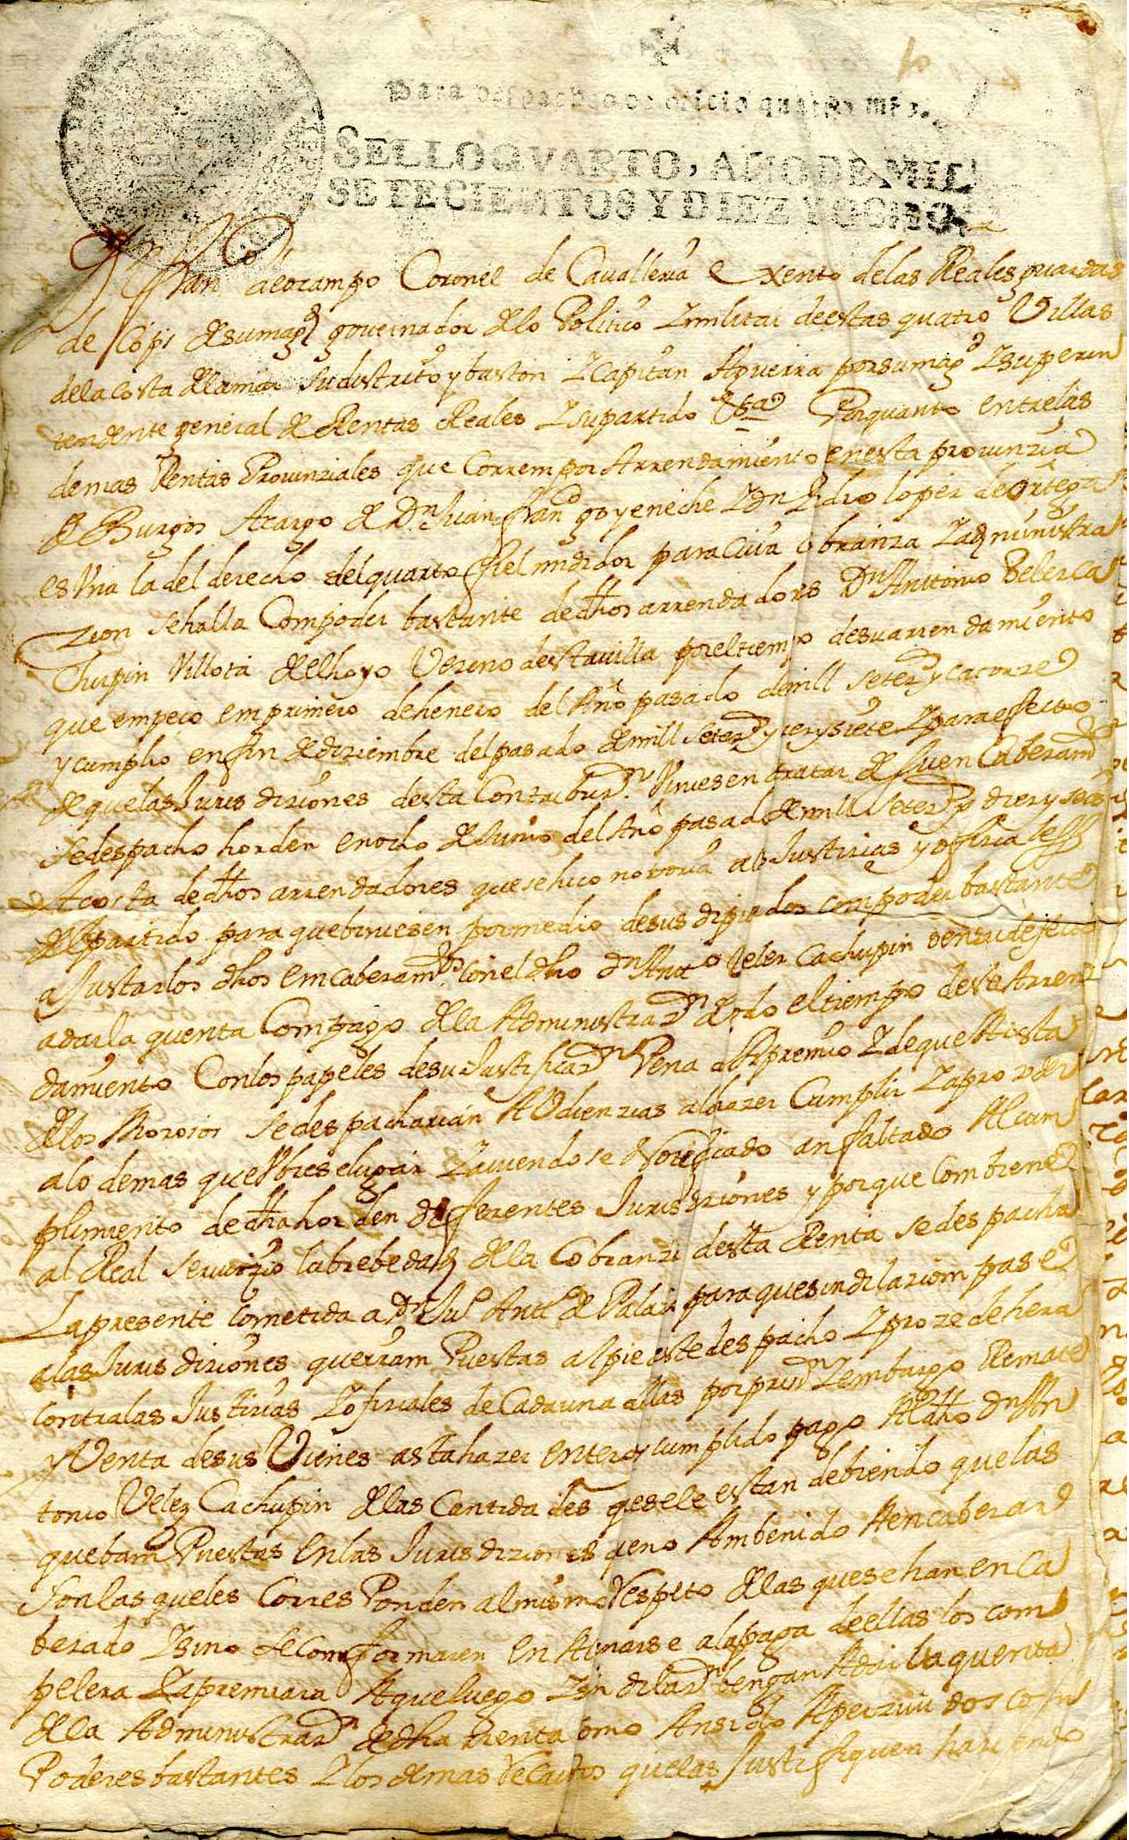 Para despachos de oficio quatro mrs.
SELLO QVARTO, AÑO DE MIL
SETECIENTOS Y DIEZ Y OCHO.
Dn Fran de ocampo Coronel de Cavalleria exento delas Reales guardas
de Cops de sumagd governador delo Politico Zmilitar deestas quatro Villas
dela costa dela mar sudistrito y baston Zcapitan Aguerra por sumagd Zsuperin
tendente general de Rentas Reales Zsupartido &ca Porquanto entrelas
demas Rentas Provinziales que Corren por Arrendamiento enesta provinzia
de Burgos Acargo de Dn Juan Franco goyeneche Zdn Pedro loper de Ortega
es Una la del derecho del quarto fiel medidor para cuia cobranza Zadministra
zion sehalla Compoder bastante de dhos arrendadores Dn Antonio Belez Ca
Chupin Villota del hoyo Vezino destavilla por eltiempo desuarrendamiento
que empeço em primero de henero del Año pasado demill setezs y catorze
y cumplio enfin de diziembre del pasado de mill setezs y diez y siete Zpara effecto
de quelas Juris diziones desta Contribuzn Viniesen atratar de su en Cabezamto
se despacho horden enocho de Junio del Año pasado de mill setezs y diez y seis
Acosta de dhos arrendadores quesehico notoria alas Justizias y ofiziales
del partido para quebiniesen pormedio desus diputados compoder bastante
a Justarlos dhos encabezamtos con el dho dn Anto Velez Cachupin oensudefecto
adarla quenta Compago dela Administrazn de todo eltiempo deeste Arren
damiento Conlos papeles desu Justificazn Pena de Apremio Zdeque Acosta
delos Morosos se despacharian Audienzias ahazer Cumplir Zaproceder
alo demas que Ubiese lugar Zaviendose Notiziado an faltado Alcum
plimiento de dha horden diferentes Jurisdiziones y porque combiene
al Real servizio labrebedad dela Cobranza desta Renta sedespacha
Lapresente cometida a Dn Ju Anto de Palazi para quesindilazion pase
alas Juris diziones queiran Puestas alpie este despacho Zprozedehera
contralas Justizias Zofiziales de Cadauna dellas porprisn Zembargo Remate
y Venta desus Vienes astahazer entero y cumplido pago Aldho dn An
tonio Velez Cachupin delas Cantidades quesele estan debiendo quelas
quebam Puestas Enlas Juris diziones queno Ambenido Aencabezard
son las queles Corres Ponden almismo Respeto delas quesehan en Ca
bezado Zsino seconformaren En Alanarse alapaga deellas los com
pelera Zapremiara Aqueluego Zsin dilazn bengan Adar la quenta
dela Administrazn de dha Renta como Ansido Aperzivi dos con
Poderes bastantes Zlos demas Recados quelas Justifiquen haziendo